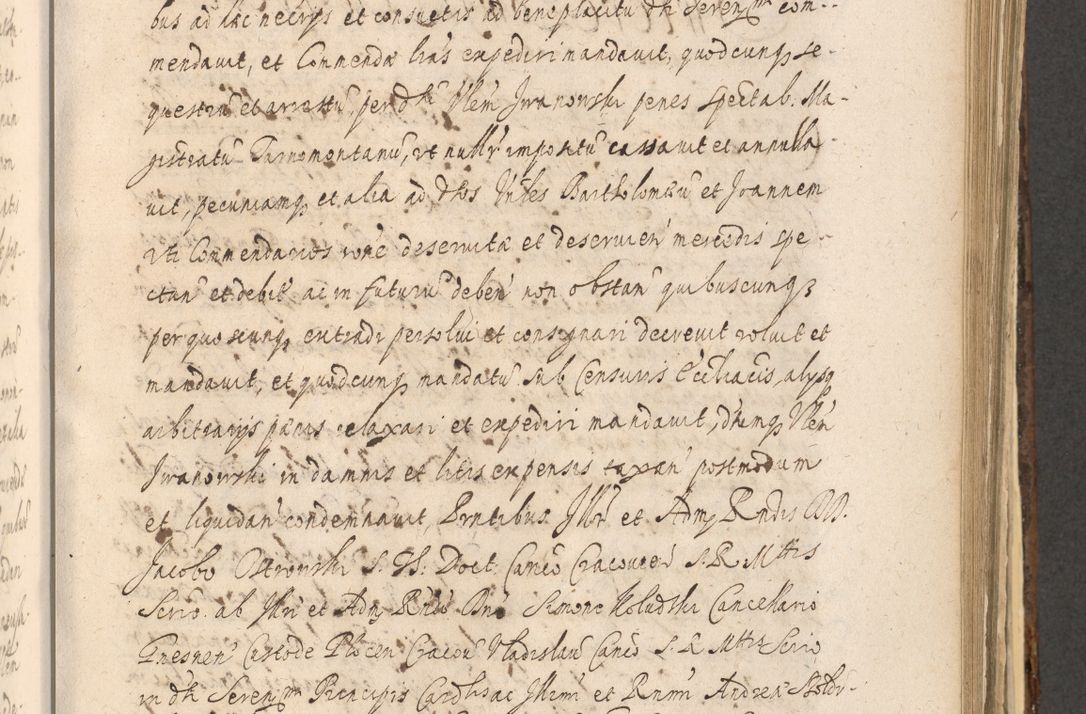 bus ad hac necrijs et consuetis ad beneplacitũ dti Serenmi com-
mendavit, et Commendæ lras expediri mandavit, quodcunqz se-
questrũ et arrestũ per dtũ Vlem Jwanowski penes spectab. Ma-
gistratũ Tarnomontanũ, ut nullr impositũ cassavit et annulla-
vit, pecuniamqz et alia ad dtos Vrles Bartholomæũ et Joannem
uti Commendarios rone deservitæ et deservien mercedis spe-
ctan et debit ac in futurũ deben non obstan quibuscunqz
per quoscunqz extradi persolvi et consignari decrevit voluit et
mandavit, et quodcunqz mandatũ sub Censuris Ecclicis, alysqz
arbitrarijs pænis relaxari et expediri mandavit, dtumqz Vlen
Jwanowski in damnis et litis expensis taxan postmodum
et liquidan condemnavit, Prntibus Jllr et Admz Rndis DD.
Jacobo Ostrowski J. V. Doct. Canco Cracovien S. R. Mttis
Scrio. ab Jllri et Admz Rndo Dno Simone Koludzki Cancellario
Gnesnen Custode Plocen Cracou Vladislau Canco S. R. Mttis Scrio
in dti Serenmi Principis Cardlis ac Jllmi et Rnmi Andreæ Holdr-